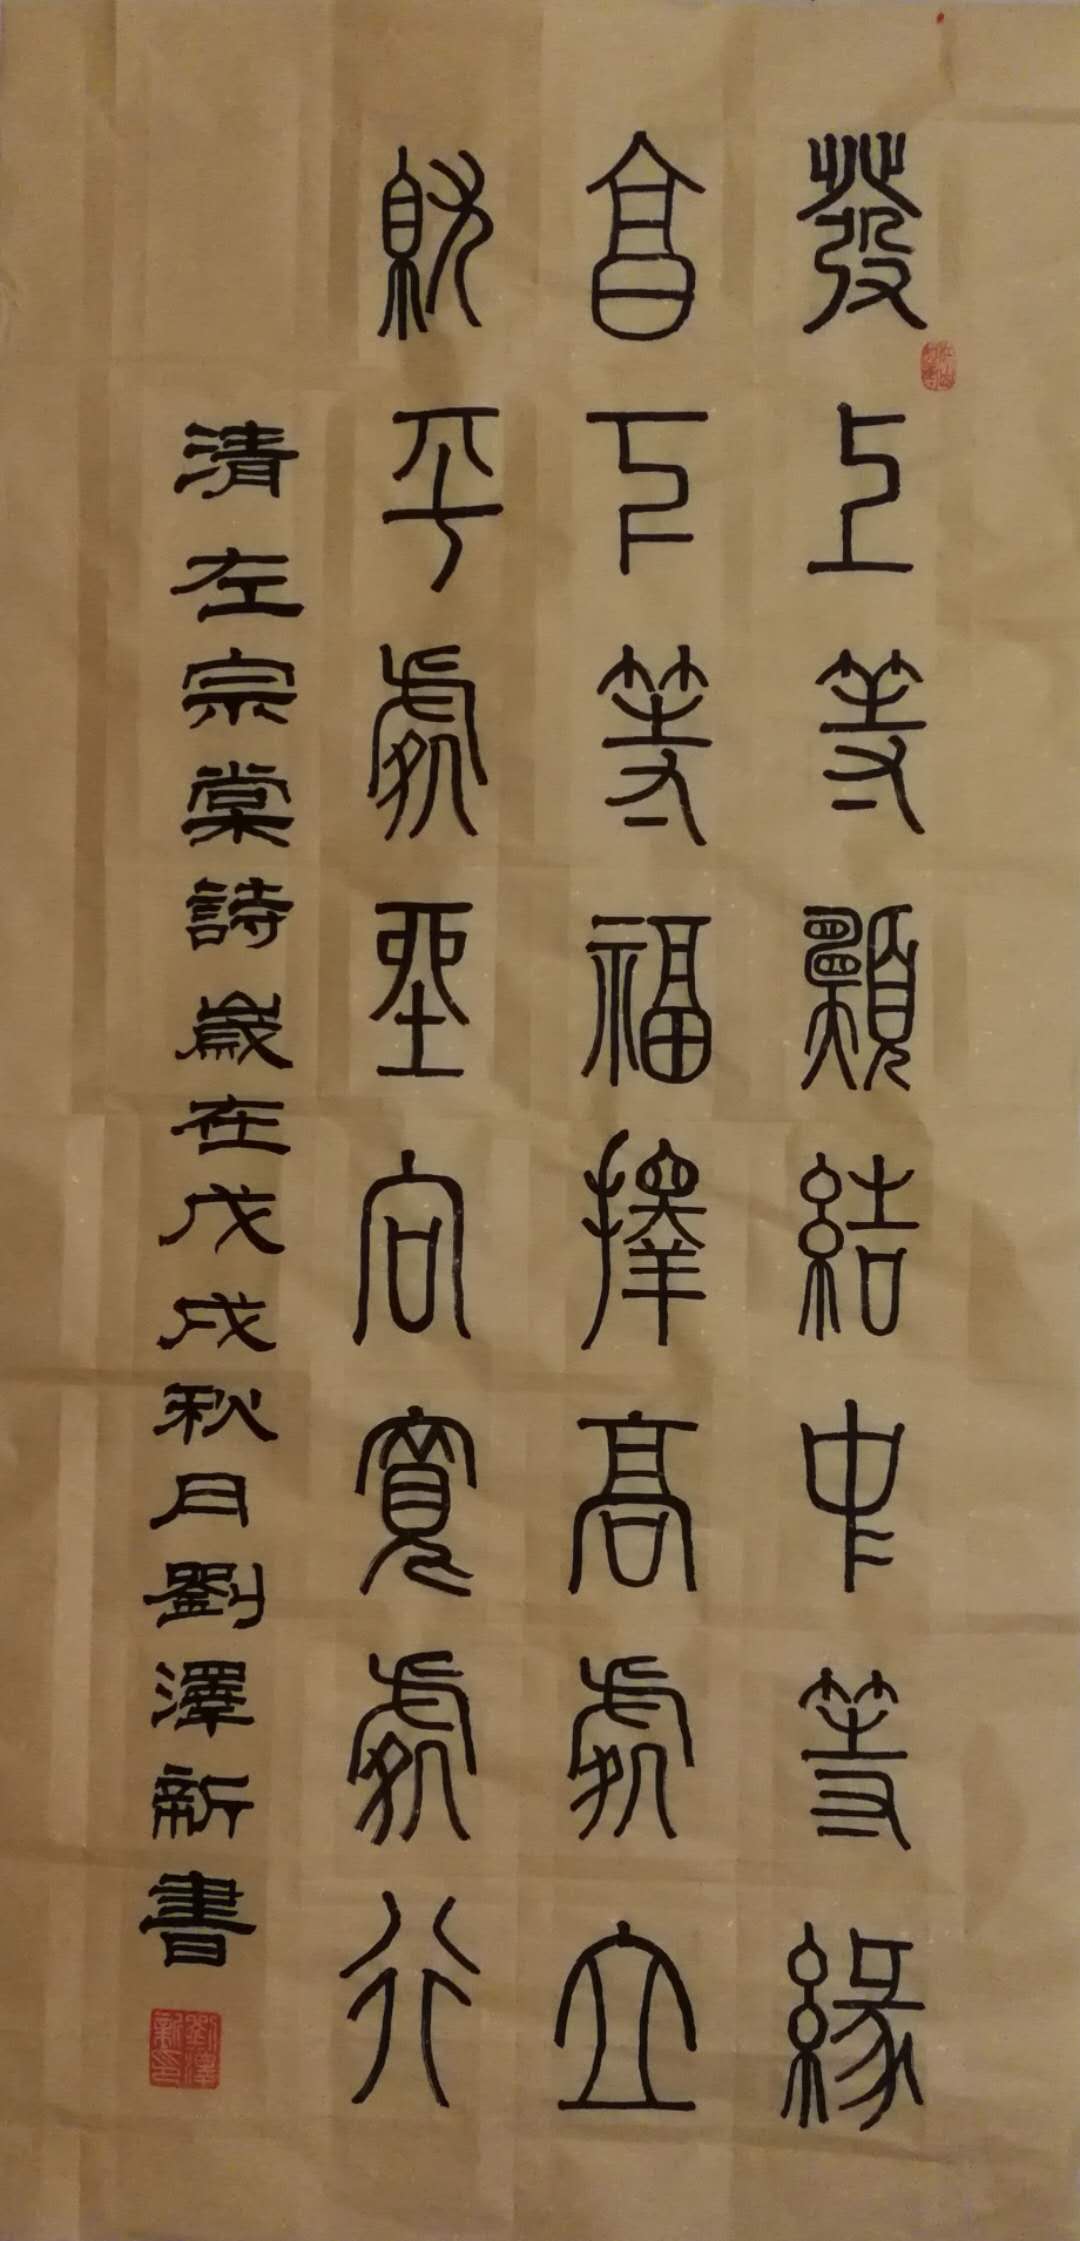 發上等願結中等緣
享下等福擇高處立
就平處坐向寬處行
清左宗棠詩歲在戊戌秋月劉澤新書
劉澤新印